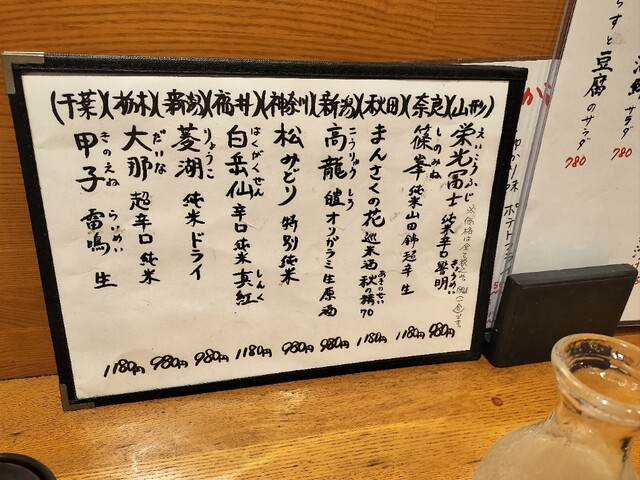 (山形)
えいこうふじ
栄光冨士 純米辛口 響明
きょうめい
980円
(奈良)
しのみね
篠峯 純米山田錦超辛 生
1180円
(秋田)
まんさくの花 巡米酒 秋の精70
あきのせい
1180円
(新潟)
こうりゅう しょう
高龍 オリガラミ 生原酒
980円
(神奈川)
松みどり 特別純米
980円
(福井)
はくがくせん
白岳仙 辛口純米 真紅
しんく
1180円
(新潟)
りょうこ
菱湖 純米ドライ
980円
(栃木)
だいな
大那 超辛口 純米
980円
(千葉)
きのえね
甲子 雷鳴 生
らいめい
1180円
豆腐のサラダ
780
サラダ
780